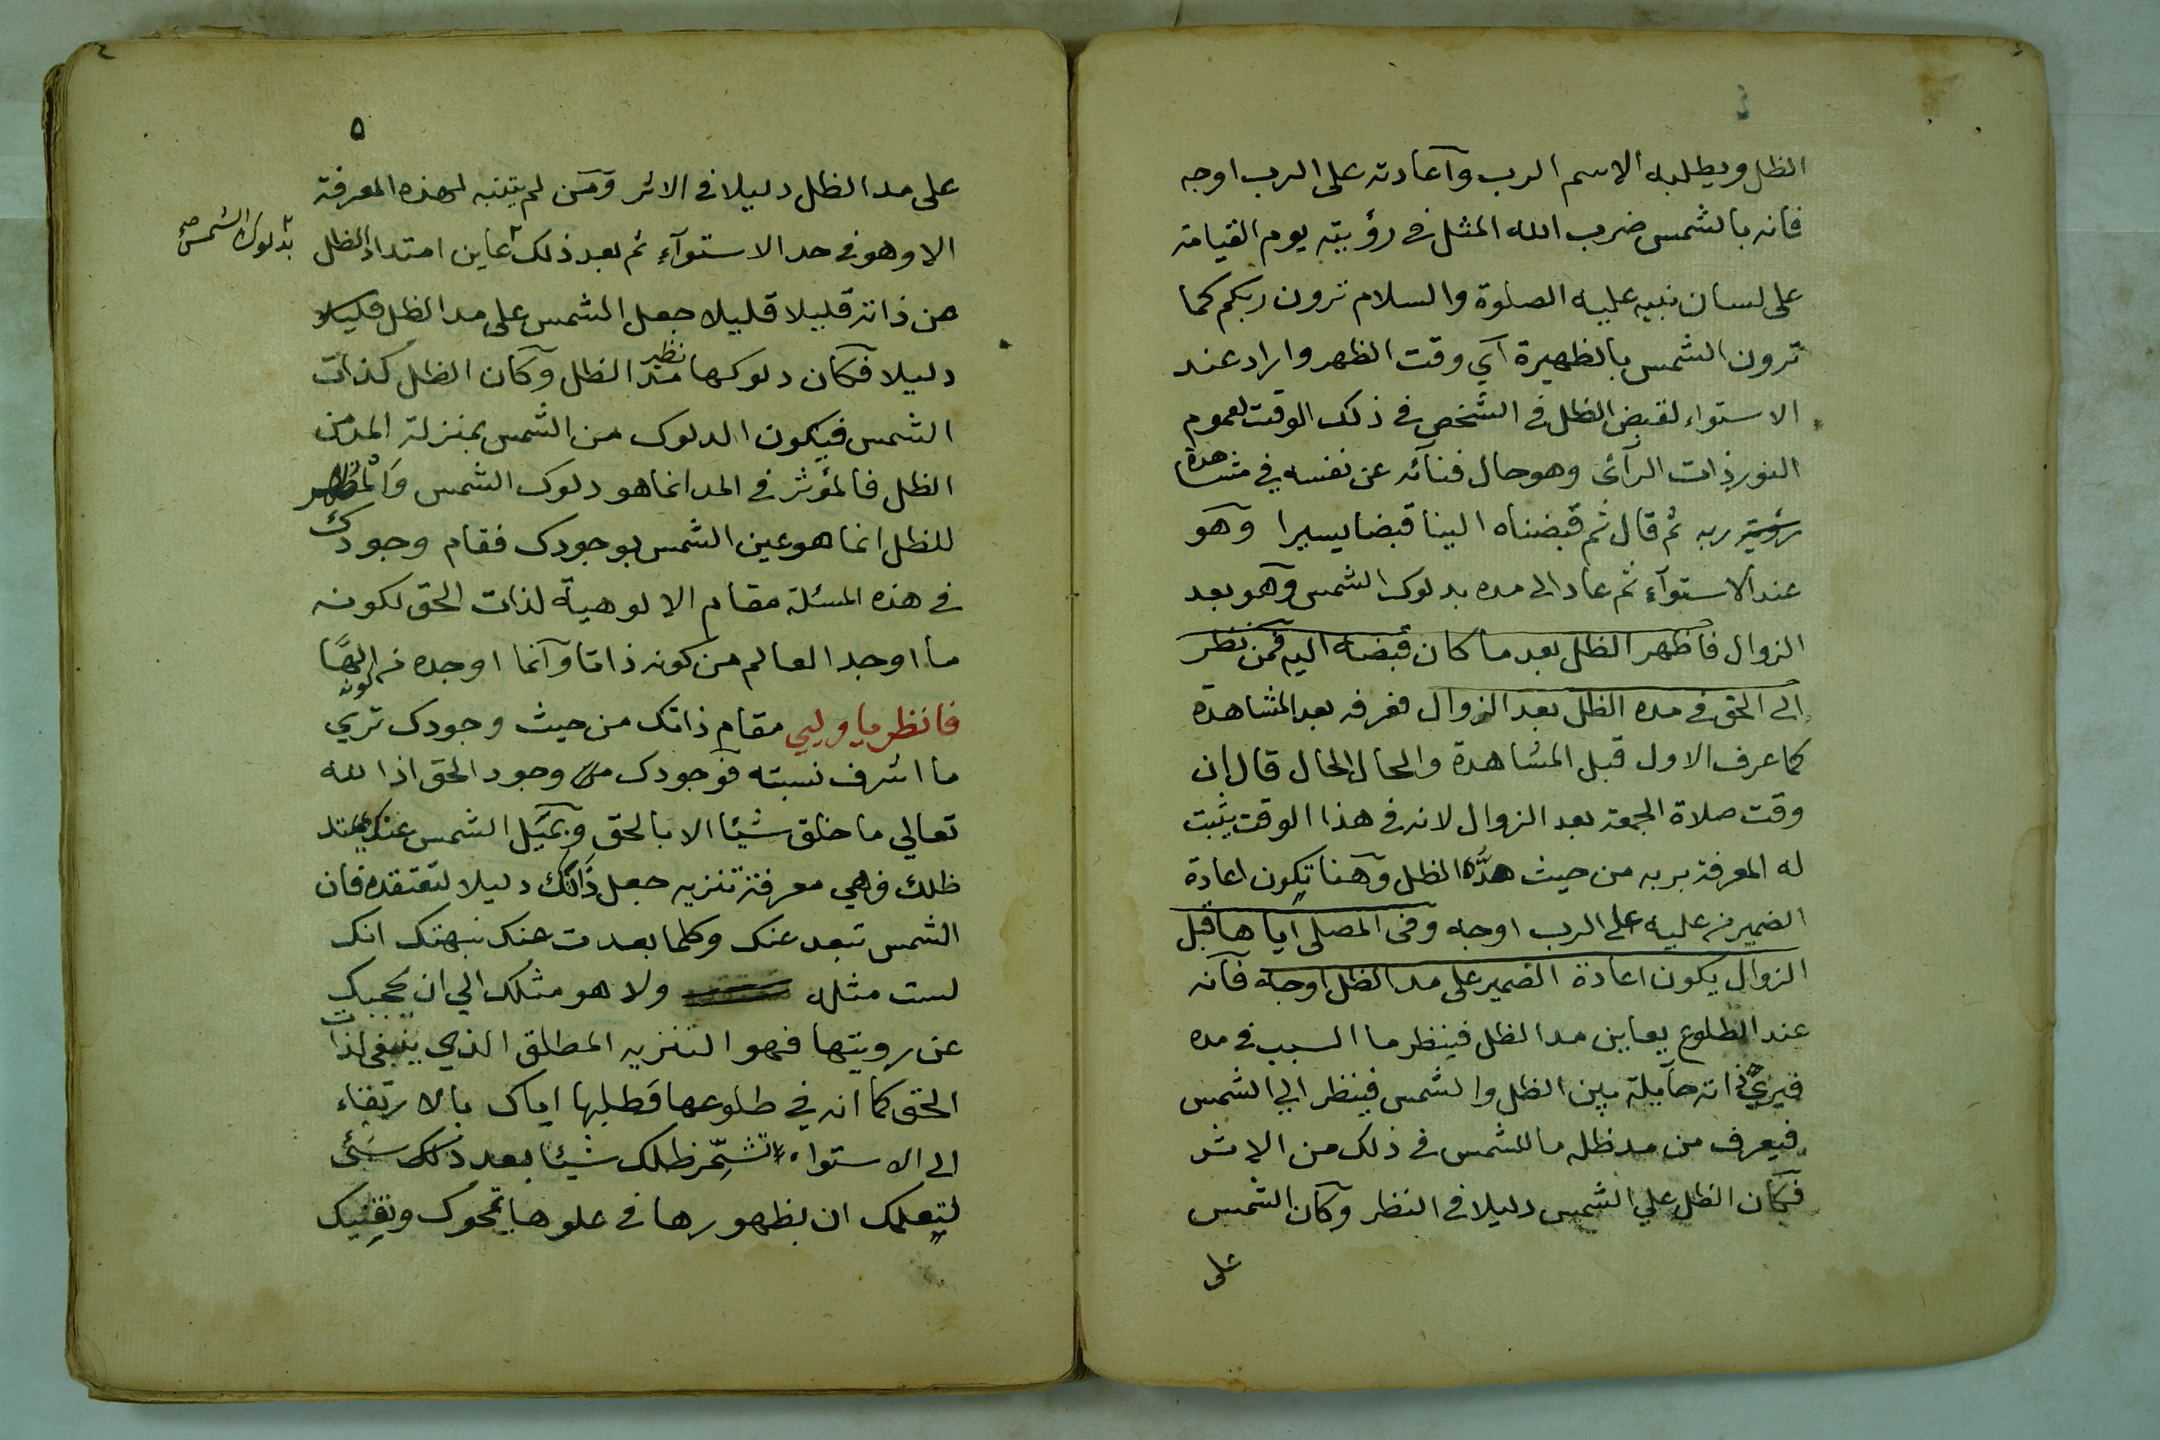 ٤
الظل ويطلبه الاسم الرب وآعادته على الرب اوجه
فانه بالشمس ضرب الله المثل في رؤيته يوم القيامة
على لسان نبيه عليه الصلوة والسلام ترون ربكم كما
ترون الشمس بالظهيرة آي وقت الظهر واراد عند
الاستواء لقبض الظل في الشخص في ذلك الوقت لعموم
النور ذات الرآئى وهو حال فنآئه عن نفسه في مشاهدة
رؤية ربه ثم قال ثم قبضناه الينا قبضا يسيرا وهو
عند الاستوآء ثم عاد الى مده بدلوك الشمس وهو بعد
الزوال فاظهر الظل بعد ما كان قبضه اليه فمن نظر
الى الحق في مده الظل بعد الزوال فعرفه بعد المشاهدة
كما عرف الاول قبل المشاهدة والحال الحال قال ان
وقت صلاة الجمعة بعد الزوال لانه في هذا الوقت يثبت
له المعرفة بربه من حيث مده الظل وهنا يكون اعادة
الضمير من عليه على الرب اوجه وفى المصلى اياها قبل
الزوال يكون اعادة الضمير على مد الظل اوجه فانه
عند الطلوع يعاين مد الظل فينظر ما السبب في مده
فيرى ذاته حآيلة بين الظل والشمس فينظر الي الشمس
فيعرف من مد ظله ما للشمس في ذلك من الاثر
فكان الظل علي الشمس دليلا في النظر وكان الشمس
على
٥
على مد الظل دليلا في الاثر ومن لم يتنبه لهذه المعرفة
الا وهو في حد الاستوآء ثم بعد ذلك عاين امتداد الظل
بدلوك الشمس صح
من ذاته قليلا قليلا جعل الشمس على مد الظل
دليلا فكان دلوكها نظير مد الظل وكان الظل كذات
الشمس فيكون الدلوك من الشمس بمنزلة المد من
الظل فالمؤثر في المد انما هو دلوك الشمس والمظهر
للظل انما هو عين الشمس بوجودك فقام وجودك
في هذه المسئلة مقام الالوهية لذات الحق لكونه
ما اوجد العالم من كونه ذاتا وآنما اوجده من كونه الهًا
فانظر يا وليي مقام ذاتك من حيث وجودك تري
ما اشرف نسبته فوجودك وجود الحق اذ الله
تعالي ما خلق شيئا الا بالحق وبميل الشمس عنك يمتد
ظلك فهي معرفة تنزيه جعل ذلك دليلا لتعتقده فان
الشمس تبعد عنك وكلما بعدت عنك نبهتك انك
لست مثله ولا هو مثلك الي ان يحجبك
عن رويتها فهو التنزيه المطلق الذي ينبغي لذات
الحق كما انه في طلوعها وطلبها اياك بالارتفاء
الى الاستواء تشمّر ظلك شيئا بعد شئ
لتعلمك ان بظهورها في علوها تمحوك وتفنيك